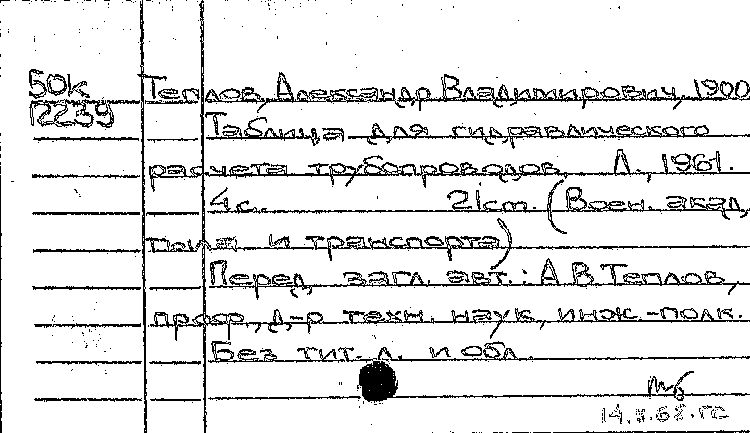 50к Теплов, Александр Владимирович, 1900
12239
Таблица для гидравлического
расчета трубопроводов. Л., 1961.
4с. 21см. (Воен. акад.
тыла и транспорта)
Перед загл. авт.: А.В.Теплов,
проф., д-р техн. наук, инж.-полк.
Без тит. л. и обл.